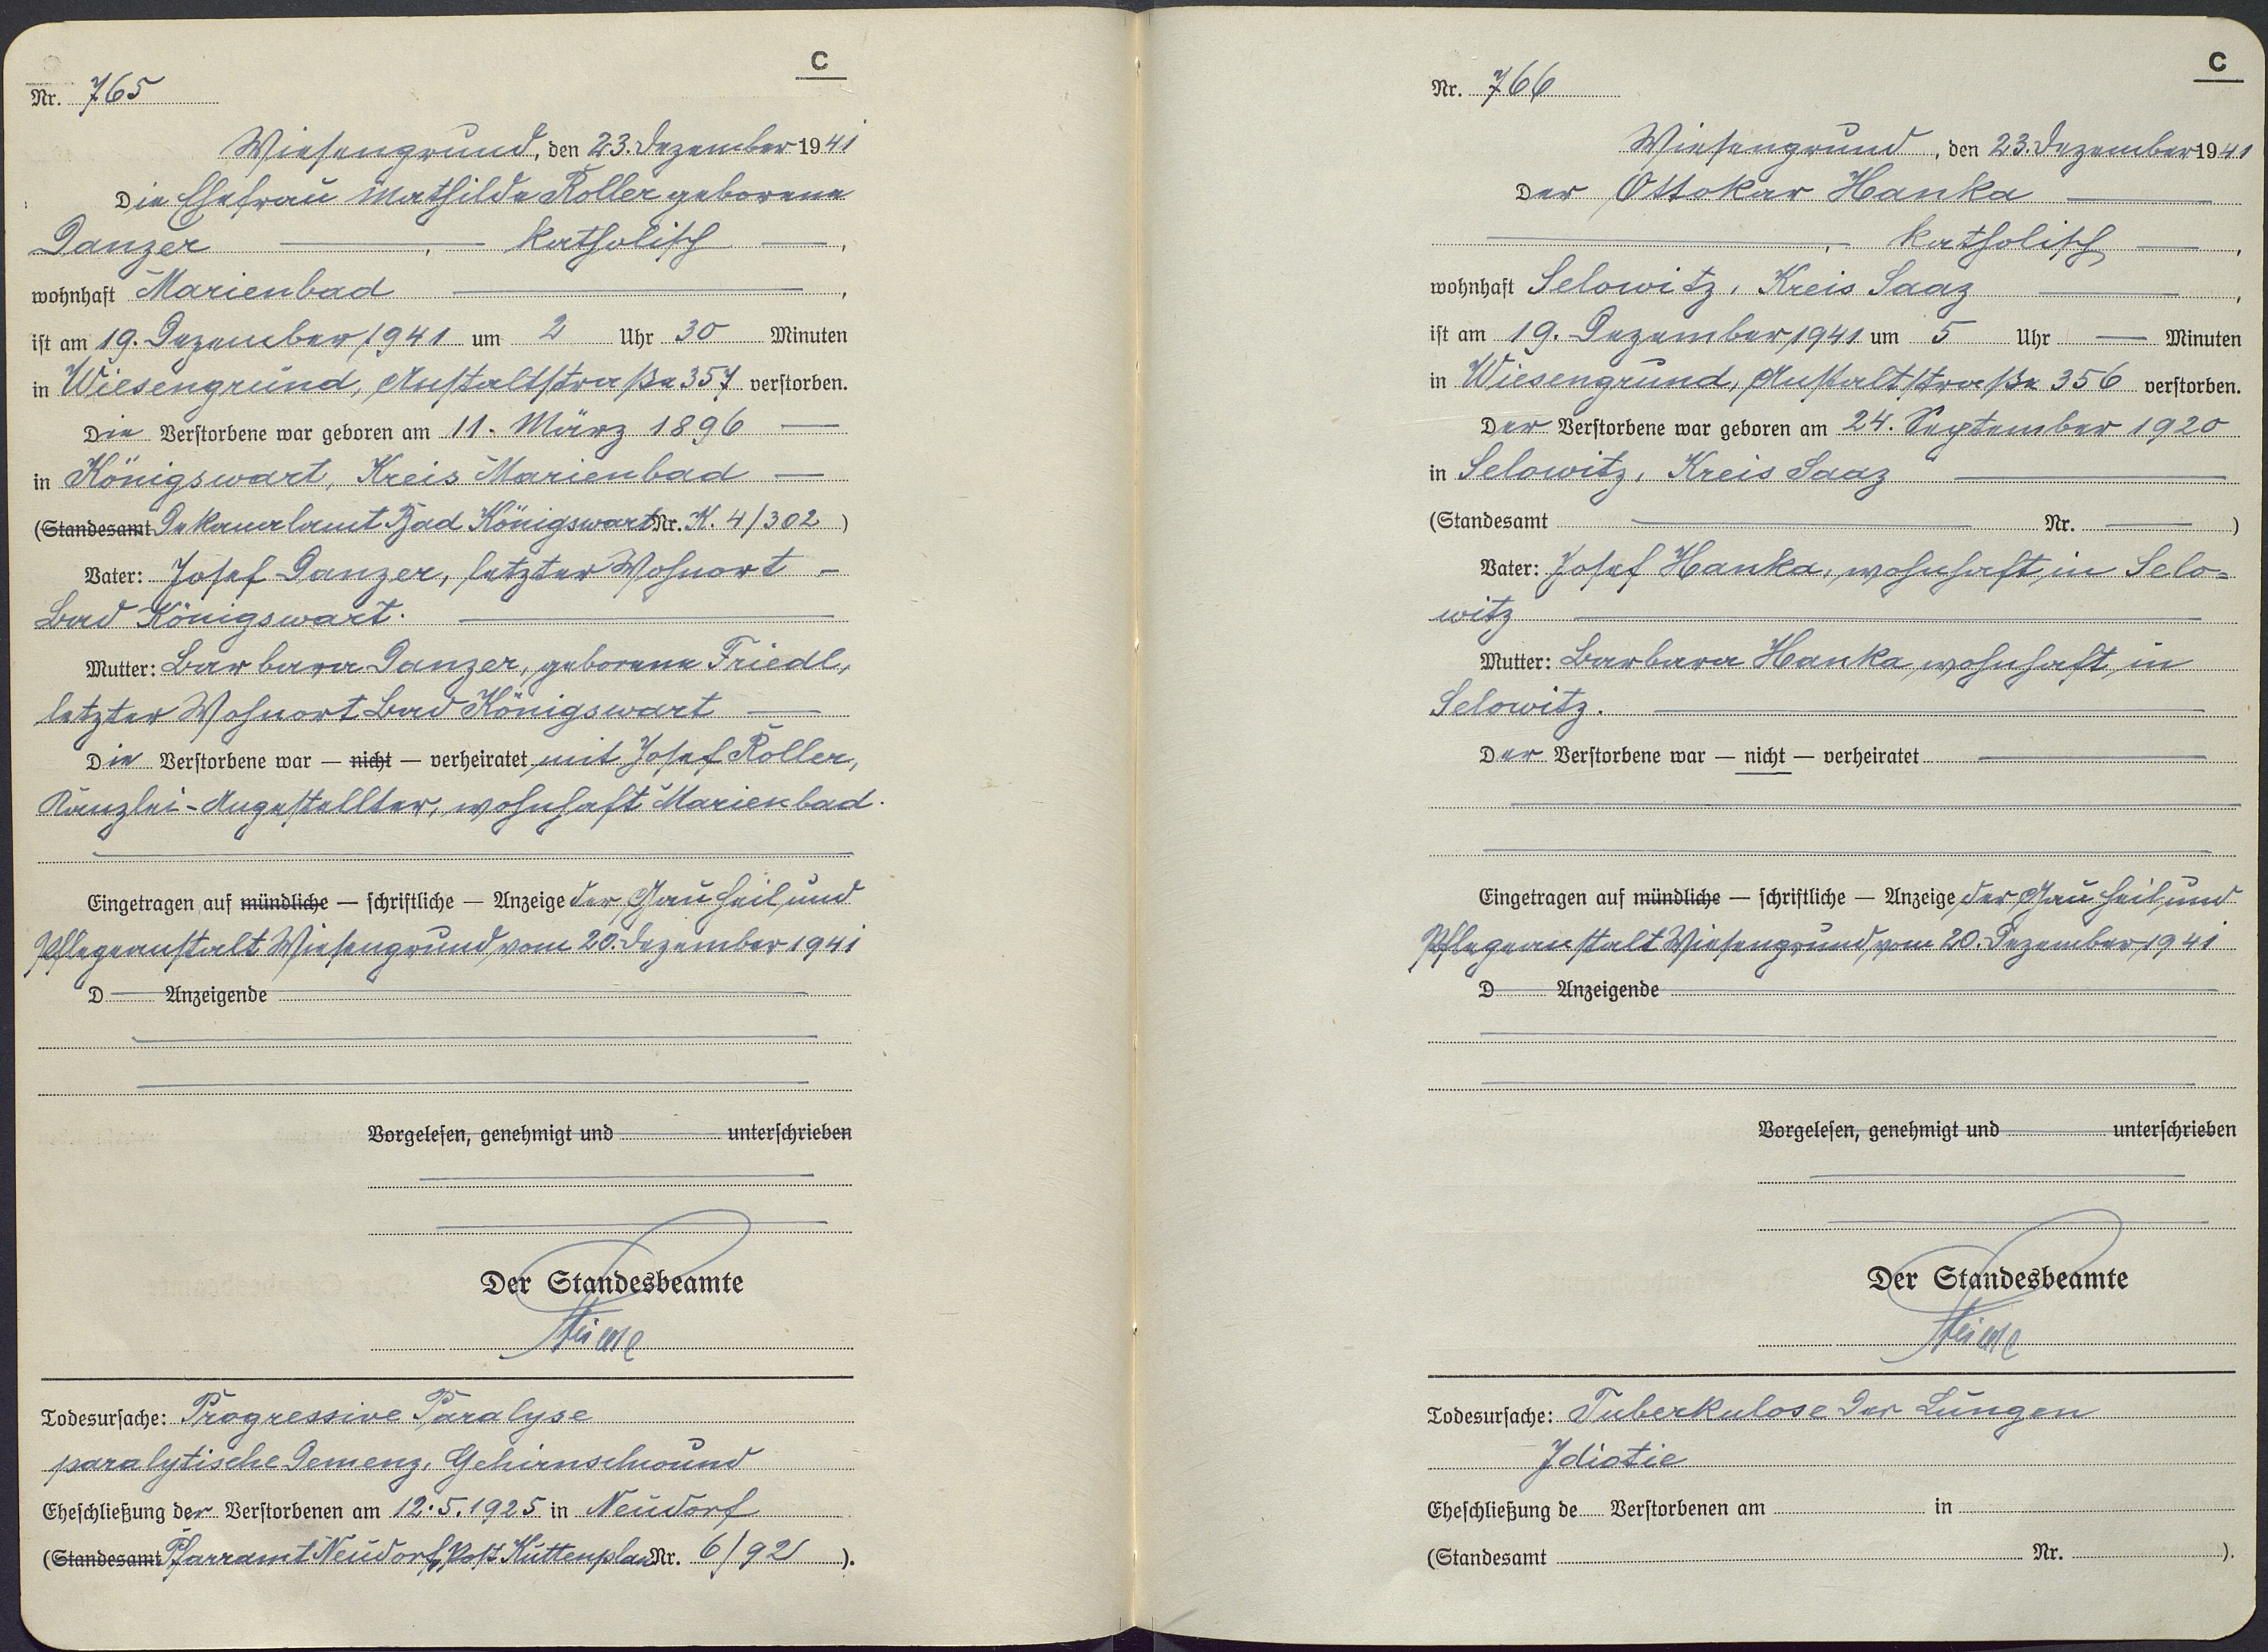 C
Nr. 765
Wiesengrund, den 23. Dezember 1941
Die Ehefrau Mathilde Roller geborene
Danzer — , — katholisch — ,
wohnhaft Marienbad — ,
ist am 19. Dezember 1941 um 2 Uhr 30 Minuten
in Wiesengrund, Anstaltstraße 357 verstorben.
Die Verstorbene war geboren am 11. März 1896 —
in Königswart, Kreis Marienbad —
(Standesamt Dekanalamt Bad Königswart Nr. K. 4/302 )
Vater: Josef Danzer, letzter Wohnort –
Bad Königswart. —
Mutter: Barbara Danzer, geborene Friedl,
letzter Wohnort Bad Königswart —
Die Verstorbene war — nicht — verheiratet mit Josef Roller,
Kanzlei-Angestellter, wohnhaft Marienbad.
Eingetragen auf mündliche — schriftliche — Anzeige der Gau Heil und
Pflegeanstalt Wiesengrund vom 20. Dezember 1941
D — Anzeigende —
Vorgelesen, genehmigt und — unterschrieben
Der Standesbeamte
Todesursache: Progressive Paralyse
paralytische Demenz, Gehirnschwund
Eheschließung der Verstorbenen am 12.5.1925 in Neudorf
(Standesamt Pfarramt Neudorf, Post Kuttenplan Nr. 6/92 ).
C
Nr. 766
Wiesengrund, den 23. Dezember 1941
Der Ottokar Hanka —
— , — katholisch — ,
wohnhaft Selowitz, Kreis Saaz — ,
ist am 19. Dezember 1941 um 5 Uhr — Minuten
in Wiesengrund, Anstaltstraße 356 verstorben.
Der Verstorbene war geboren am 24. September 1920
in Selowitz, Kreis Saaz —
(Standesamt — Nr. — )
Vater: Josef Hanka, wohnhaft in Selo=
witz —
Mutter: Barbara Hanka wohnhaft in
Selowitz. —
Der Verstorbene war — nicht — verheiratet —
Eingetragen auf mündliche — schriftliche — Anzeige der Gau Heil und
Pflegeanstalt Wiesengrund vom 20. Dezember 1941
D — Anzeigende —
Vorgelesen, genehmigt und — unterschrieben
Der Standesbeamte
Todesursache: Tuberkulose der Lungen
Idiotie
Eheschließung de Verstorbenen am in
(Standesamt Nr. ).